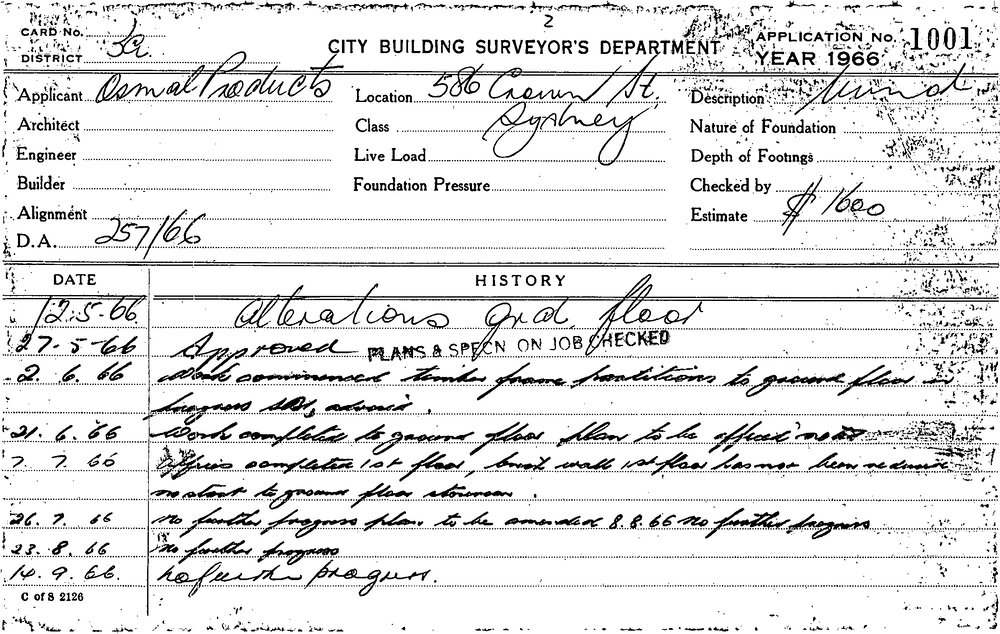 2
CARD No.
DISTRICT 3a
CITY BUILDING SURVEYOR'S DEPARTMENT
APPLICATION No. 1001
YEAR 1966
Applicant Osmal Products
Location 586 Crown St.
Sydney
Description
Architect
Class
Nature of Foundation
Engineer
Live Load
Depth of Footings
Builder
Foundation Pressure
Checked by
Alignment
Estimate $ 1600
D.A. 257/66
DATE HISTORY
12.5.66 Alterations grd. floor
27.5.66 Approved PLANS & SPECN ON JOB CHECKED
2.6.66 Work commenced timber frame partitions to ground floor in
progress
21.6.66 Work completed to ground floor plan to be
7.7.66 completed 1st floor, wall 1st floor has not been
no start to ground floor
26.7.66 no further progress plan to be amended 8.8.66 no further progress
23.8.66 no further progress
14.9.66. no further progress.
C of S 2126